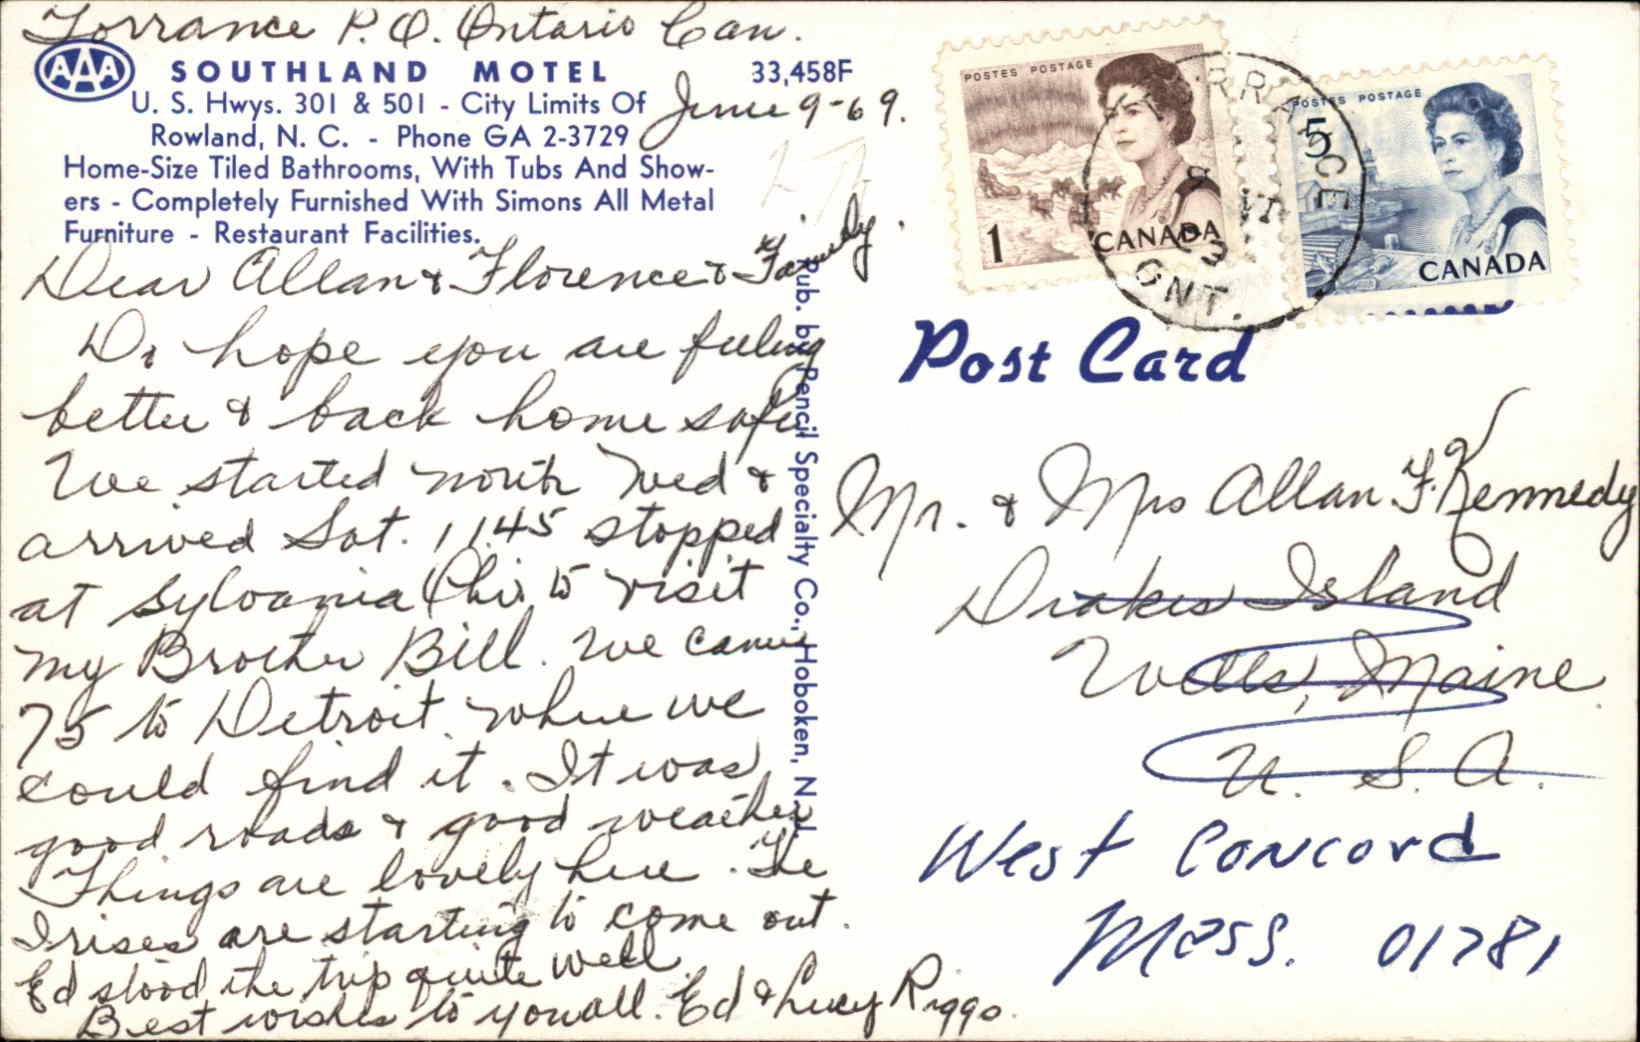 Torrance P.O. Ontario Can.
AAA
SOUTHLAND MOTEL 33,458F
U. S. Hwys. 301 & 501 - City Limits Of
Rowland, N. C. - Phone GA 2-3729
June 9-69.
Home-Size Tiled Bathrooms, With Tubs And Show-
ers - Completely Furnished With Simons All Metal
Furniture - Restaurant Facilities.
Dear Allan & Florence & Family.
Do hope you are feeling
better & back home safe
We started north Wed &
arrived Sat. 11.45 stopped
at Sylvania Ohio to visit
my Brother Bill. We came
75 to Detroit where we
could find it. It was
good roads & good weather
Things are lovely here. The
Irises are starting to come out.
Ed stood the trip quite well.
Best wishes to you all. Ed & Lucy Riggs.
Pub. by Pencil Specialty Co., Hoboken, N.J.
POSTES POSTAGE
1
CANADA
POSTES POSTAGE
5
CANADA
TORRANCE
ONT.
Post Card
Mr. & Mrs Allan F. Kennedy
Drakes Island
Wells, Maine
U. S. A.
West Concord
Mass. 01781